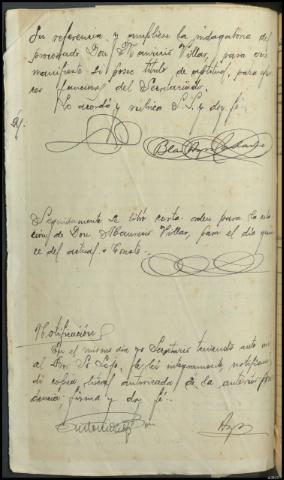 su referencia y amplíese la indagatoria del
procesado Don Mauricio Villar, para que
manifieste si posee título de aptitud, para ejer
cer funciones del Secretariado.
Lo acordó y rubrica S.S. y doy fé
Seguidamente se libró carta-orden para la cita
ción de Don Mauricio Villar, para el día quin
ce del actual.
Notificación
En el mismo día yo Secretario teniendo ante mi
al leí íntegramente, notifiqué y
dí copia literal autorizada de la anterior provi
dencia, firma y doy fé.